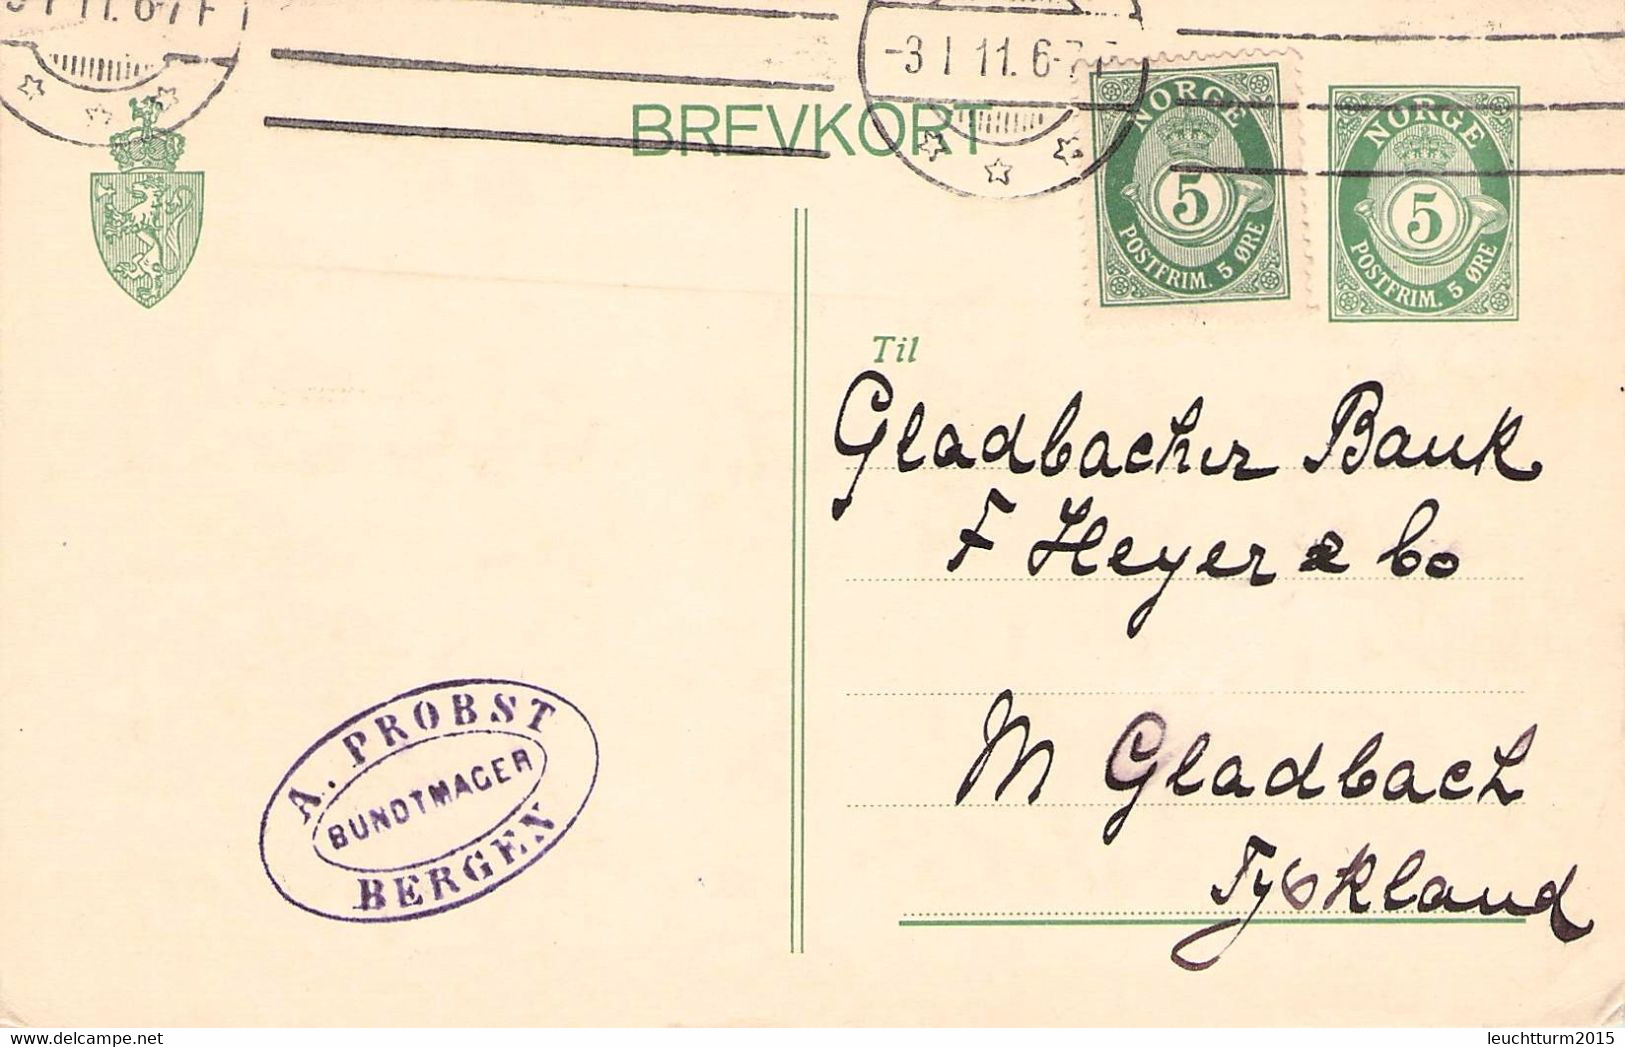 3 I 11. 6-7 F
-3 I 11. 6-7 F
BREVKORT
NORGE
5
POSTFRIM. 5 ØRE
NORGE
5
POSTFRIM. 5 ØRE
Til
Gladbacher Bank
F Heyer & Co
M Gladbach
Tyskland
A. PROBST
BUNDTMAGER
BERGEN
leuchtturm2015